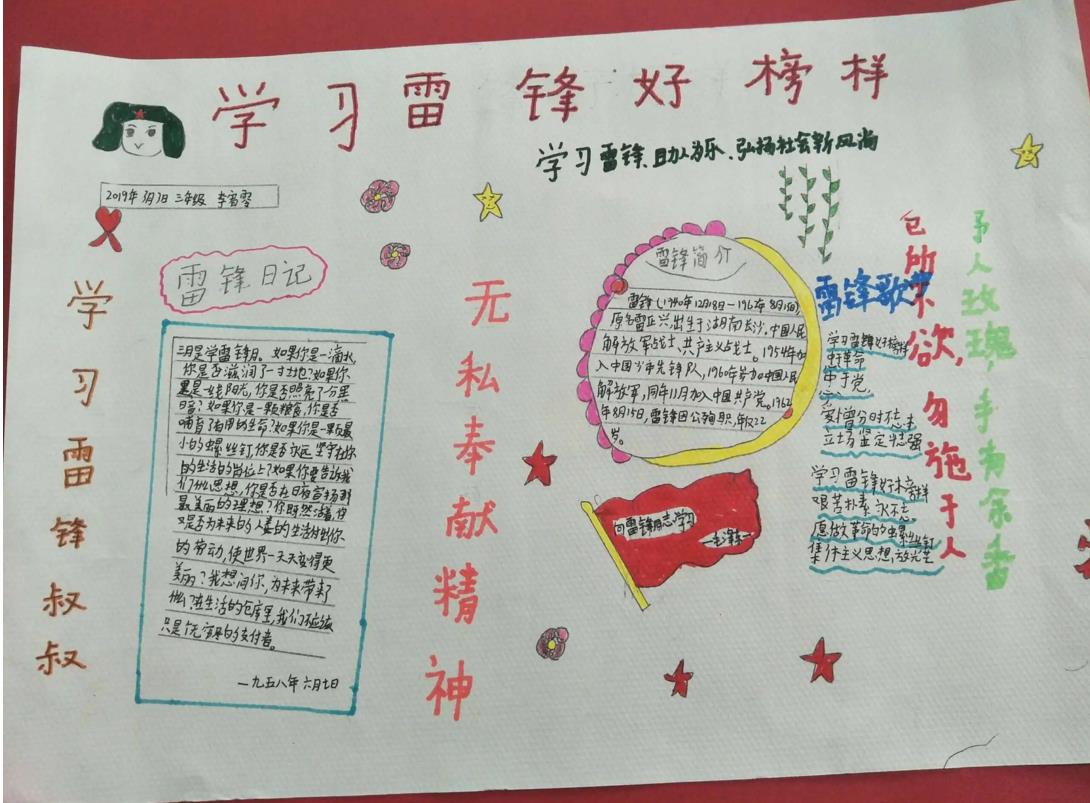 学习雷锋好榜样
学习雷锋、助人为乐、弘扬社会新风尚
2019年3月3日 三年级 李
学习雷锋叔叔
雷锋日记
三月是学雷锋月。如果你是一滴水,
你是否滋润了一寸土地?如果你
是一线阳光,你是否照亮了一分黑
暗?如果你是一颗粮食,你是否
哺育了有用的生命?如果你是一颗最
小的螺丝钉,你是否永远坚守在你
的生活的岗位上?如果你要告诉我
们什么思想,你是否在日夜宣扬那
最美丽的理想?你既然活着,你
又是否为未来的人类的生活付出你
的劳动,使世界一天天变得更
美丽?我想问你,为未来带来了
什么?在生活的仓库里,我们不应该
只是个无穷尽的支付者。
一九五八年六月七日
无私奉献精神
雷锋简介
雷锋(1940年12月18日-1962年8月15日),
原名雷正兴,出生于湖南长沙,中国人民
解放军战士,共产主义战士。1954年加
入中国少年先锋队,1960年参加中国人民
解放军,同年11月加入中国共产党。1962
年8月15日,雷锋因公殉职,年仅22
岁。
向雷锋同志学习
毛泽东
雷锋歌
学习雷锋好榜样
忠于革命
忠于党,
爱憎分明不忘本
立场坚定
学习雷锋好榜样
艰苦朴素永不忘
愿做革命的螺丝钉
集体主义思想放光芒
己所不欲,勿施于人
予人玫瑰,手有余香